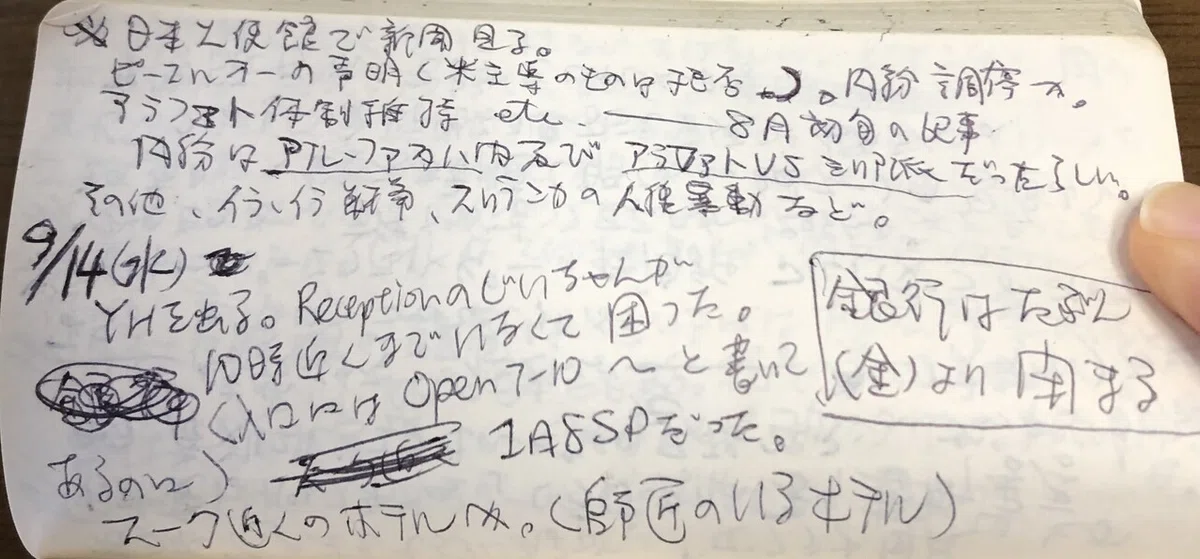 日本大使館で新聞見る。
ピーエルオーの声明(米主導のものは拒否)。内紛調停へ。
アラファト体制維持 etc. ―― 8月初旬の記事
内紛はアル・ファタハ内及びアラファトVSシリア派だったらしい。
その他、イラ・イラ戦争、スリランカの人種暴動など。
9/14(水)
YHを出る。Receptionのじいちゃんが
10時近くまでいなくて困った。
(入口には Open 7-10 〜と書いて
あるのに) 1A8SPだった。
スーク近くのホテルへ。(師匠のいるホテル)
銀行はたぶん
(金)より閉まる